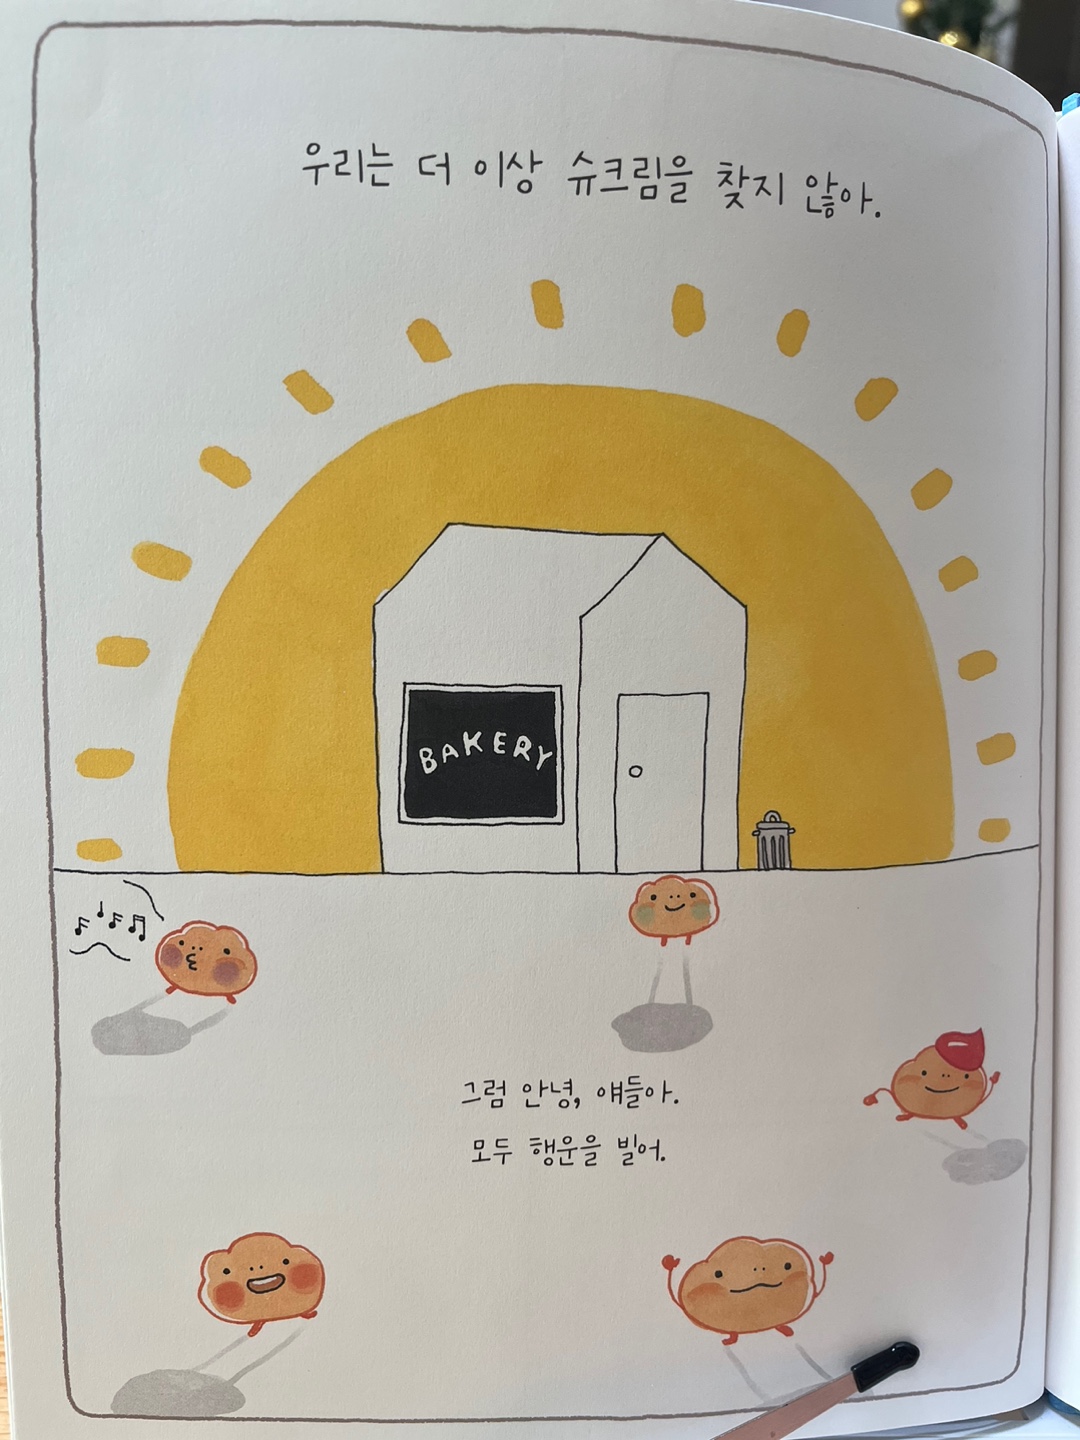 우리는 더 이상 슈크림을 찾지 않아.
BAKERY
그럼 안녕, 얘들아.
모두 행운을 빌어.